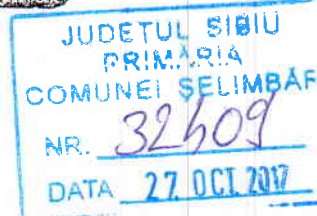 JUDEȚUL SIBIU
PRIMĂRIA
COMUNEI ȘELIMBĂR
NR. 32409
DATA 27. OCT. 2017